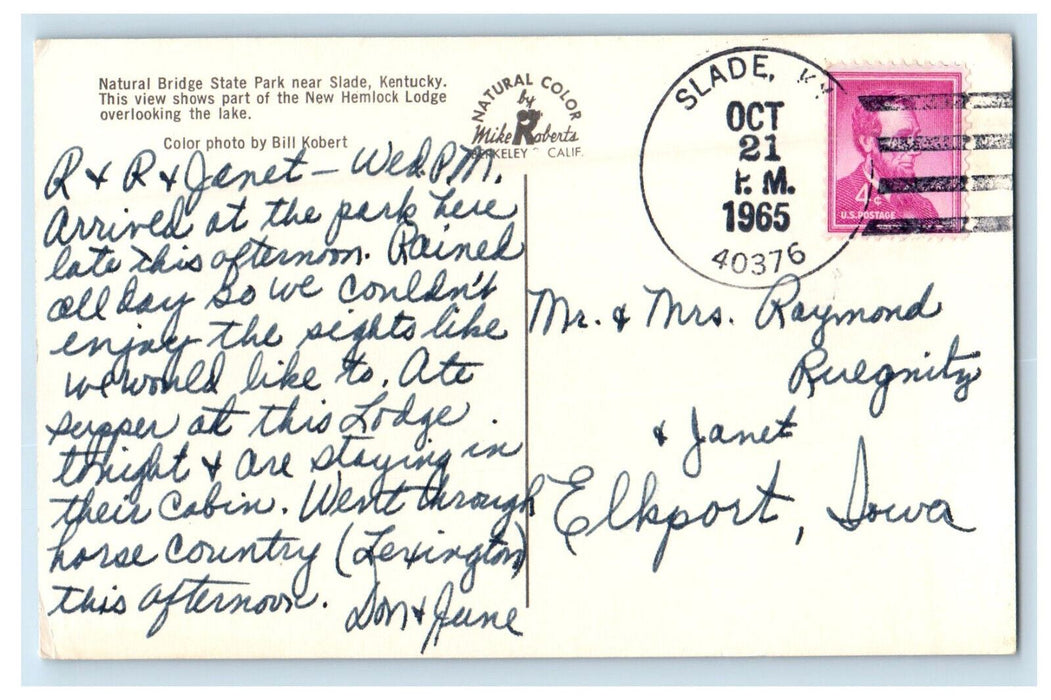 Natural Bridge State Park near Slade, Kentucky.
This view shows part of the New Hemlock Lodge
overlooking the lake.
Color photo by Bill Kobert
NATURAL COLOR
by
Mike Roberts
BERKELEY CALIF.
SLADE, KY.
OCT
21
P. M.
1965
40376
4¢
U.S. POSTAGE
R & R & Janet - Wed. P.M.
Arrived at the park here
late this afternoon. Rained
all day so we couldn't
enjoy the sights like
we would like to. Ate
supper at this Lodge
tonight & are staying in
their cabin. Went through
horse country (Lexington)
this afternoon.
Don & June
Mr. & Mrs. Raymond
Ruegnitz
& Janet
Elkport, Iowa